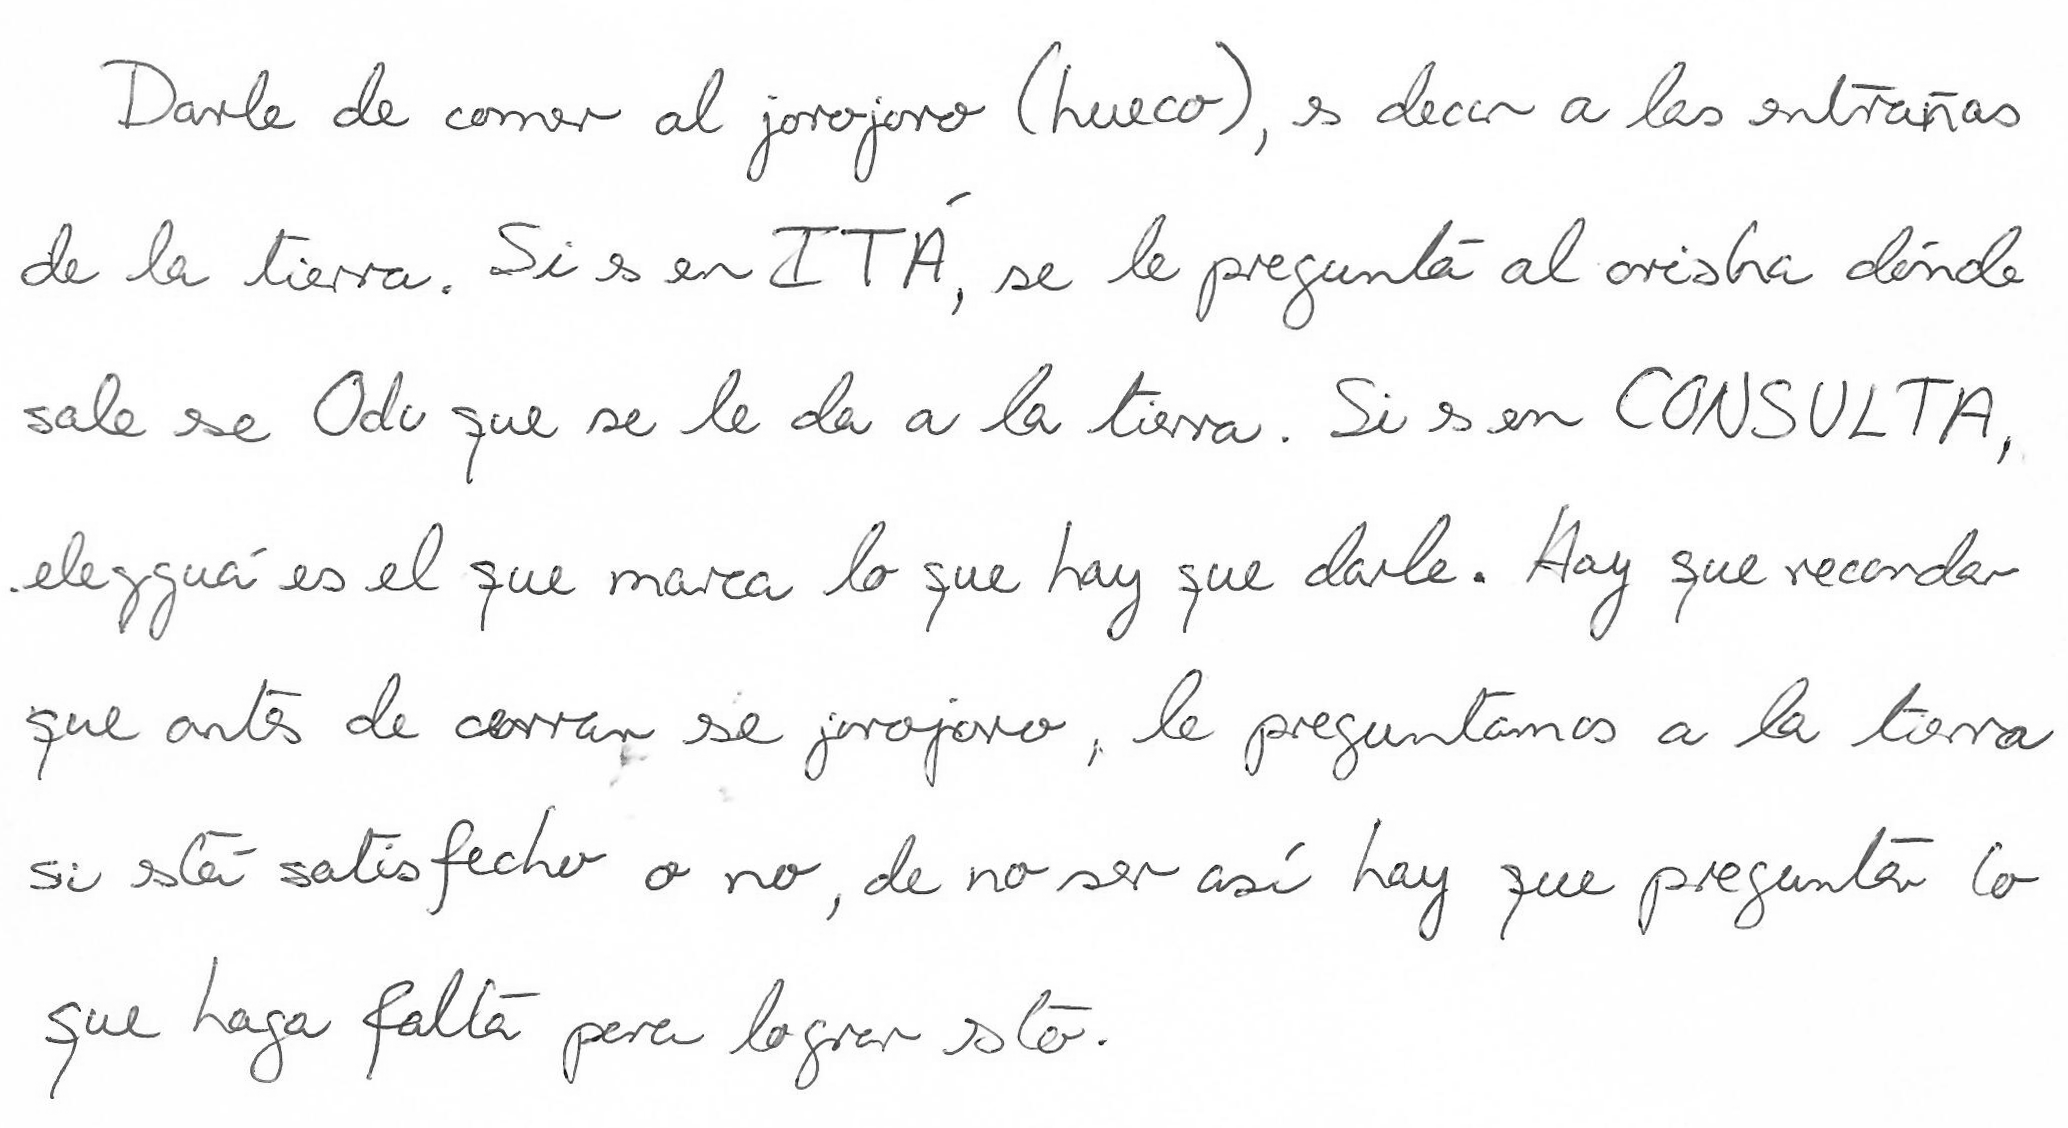 Darle de comer al jorojoro (hueco), es decir a las entrañas
de la tierra. Si es en ITÁ, se le pregunta al orisha dónde
sale ese Odu que se le da a la tierra. Si es en CONSULTA,
eleggua es el que marca lo que hay que darle. Hay que recordar
que antes de cerrar ese jorojoro, le preguntamos a la tierra
si está satisfecho o no, de no ser así hay que preguntar lo
que haga falta para lograr esto.